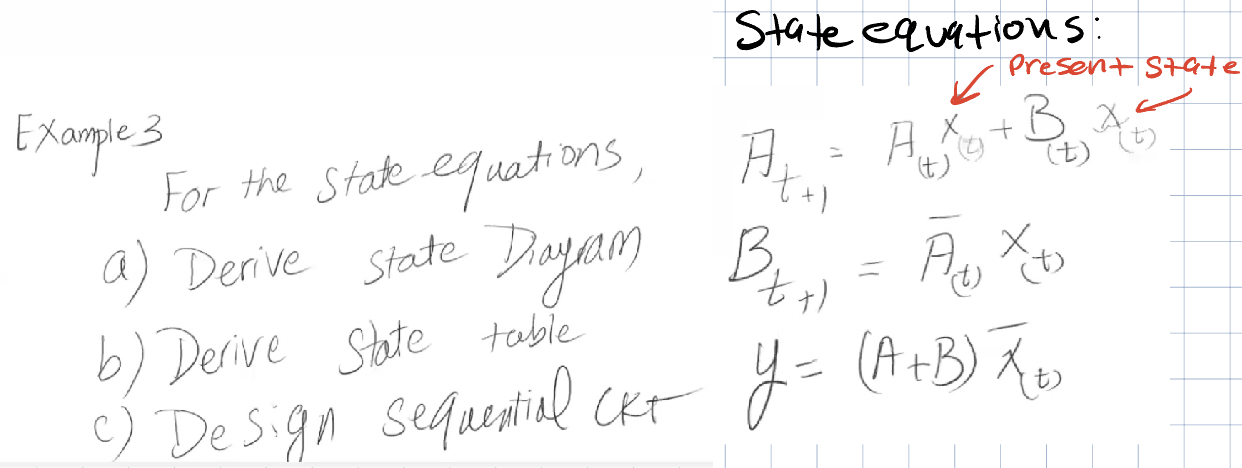 Example 3
For the state equations,
a) Derive state Diagram
b) Derive state table
c) Design sequential CKT
State equations:
Present state
A_{t+1} = A_{(t)} X_{(t)} + B_{(t)} X_{(t)}
B_{t+1} = \bar{A}_{(t)} X_{(t)}
y = (A+B) \bar{X}_{(t)}